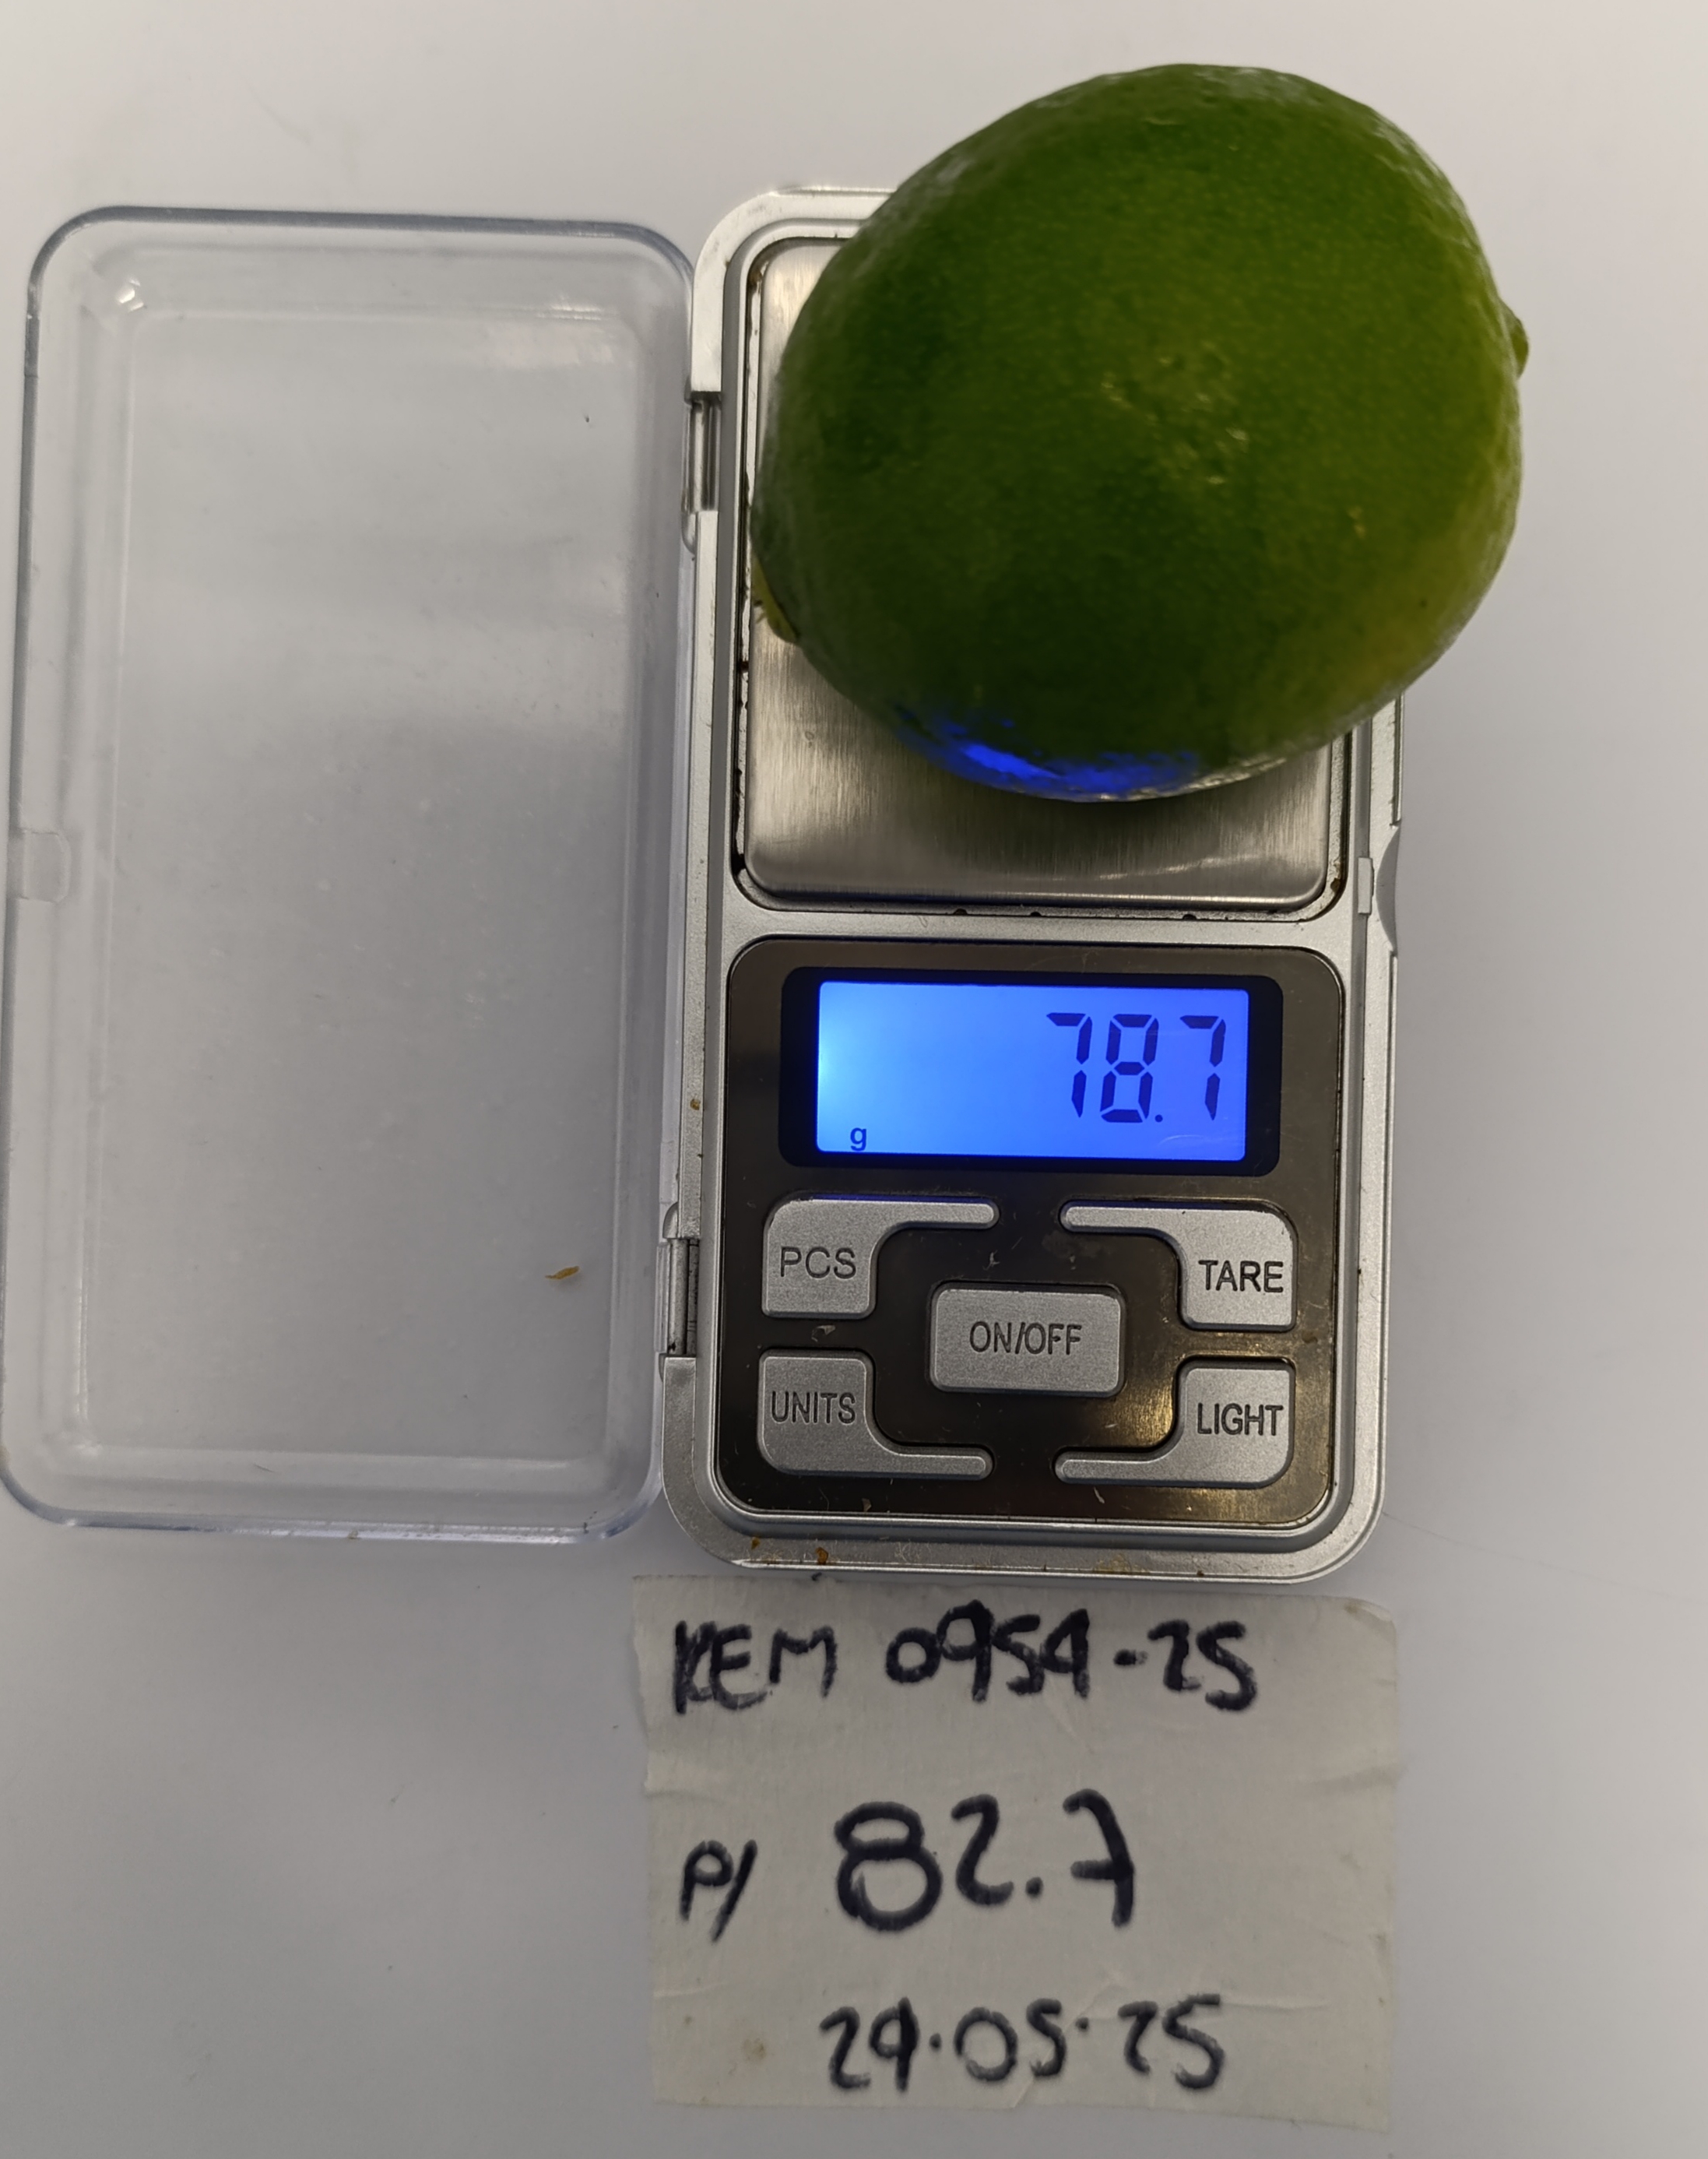 78.7
g
PCS
TARE
ON/OFF
UNITS
LIGHT
KEM 0954-25
P/ 82.7
29.05.25